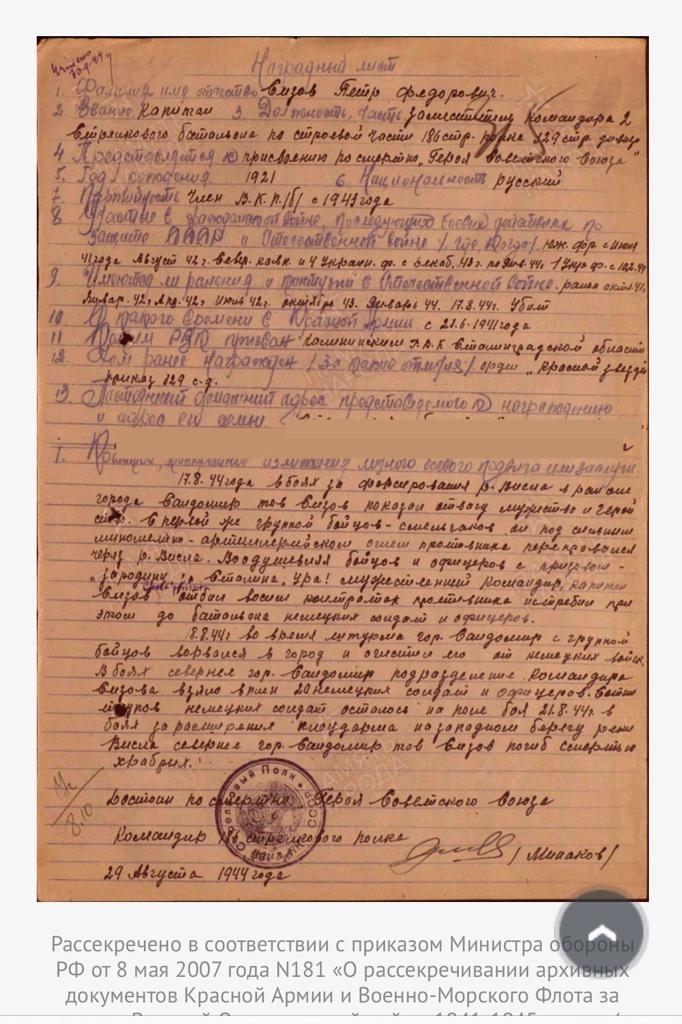 Наградный лист
1. Фамилия, имя отчество Сизов Петр Федорович.
2. Звание капитан 3. Должность, часть заместитель командира 2
стрелкового батальона по строевой части 186 стр. полка 329 стр. дивиз
4 Представляется к присвоению посмертно, Героя Советского Союза"
5. Год рождения 1921 6. Национальность русский
7. Партийность член В.К.П./б/ с 1943 года
8 Участие в гражданской войне, последующих боевых действиях по
защите СССР и Отечественной войне /где, когда/ юж. фр с июня
41 года Август 42г. кавк. и 4 Украин. ф. с 43г. по Янв. 44г. 1 Укр ф. с
9. Имеются ли ранения и контузии в Отечественной войне. ранен октяб 41г.
Январ. 42г Апр. 42г Июль 42г. октябрь 43. Январь 44. 17.8.44г. Убит
10 С какого времени в Красной Армии. с 23.6-1941 года
11 Каким РВК призван Калининским Р.В.К Сталинградской области
12. Чем ранее награжден /за какие отличия/ орден „Красной звезды
приказ 329 с.д.
13. Постоянный домашний адрес представляемого к награждению
и адрес его семьи
1. Краткое, конкретное изложение личного боевого подвига или заслуги
17.8.44 года в боях за форсирование р. Висла в районе
города Сандомир тов Сизов показал отвагу мужество и герой
ство. В первой же группой бойцов-смельчаков он под сильным
минометно-артиллерийском огнем противника переправился
через р. Висла. Воодушевляя бойцов и офицеров с призывом-
„за родину, за Сталина, Ура! мужественный командир, капитан
Сизов отбил восемь контратак противника истребил при
этом до батальона немецких солдат и офицеров.
18.8.44г во время штурма гор. Сандомир с группой
бойцов ворвался в город и очистил его от немецких войск.
В боях севернее гор. Сандомир подразделение командира
Сизова взяло в плен 29 немецких солдат и офицеров. Сотни
трупов немецких солдат осталось на поле боя 21.8.44г. в
боях за расширения плацдарма на западном берегу реки
Висла севернее гор. Сандомир тов Сизов погиб смертью
храбрых.
Достоин посмертно: Героя Советского Союза
Командир 186 стрелкового полка
/Минаков/
29 Августа 1944 года
Рассекречено в соответствии с приказом Министра обороны
РФ от 8 мая 2007 года N181 «О рассекречивании архивных
документов Красной Армии и Военно-Морского Флота за